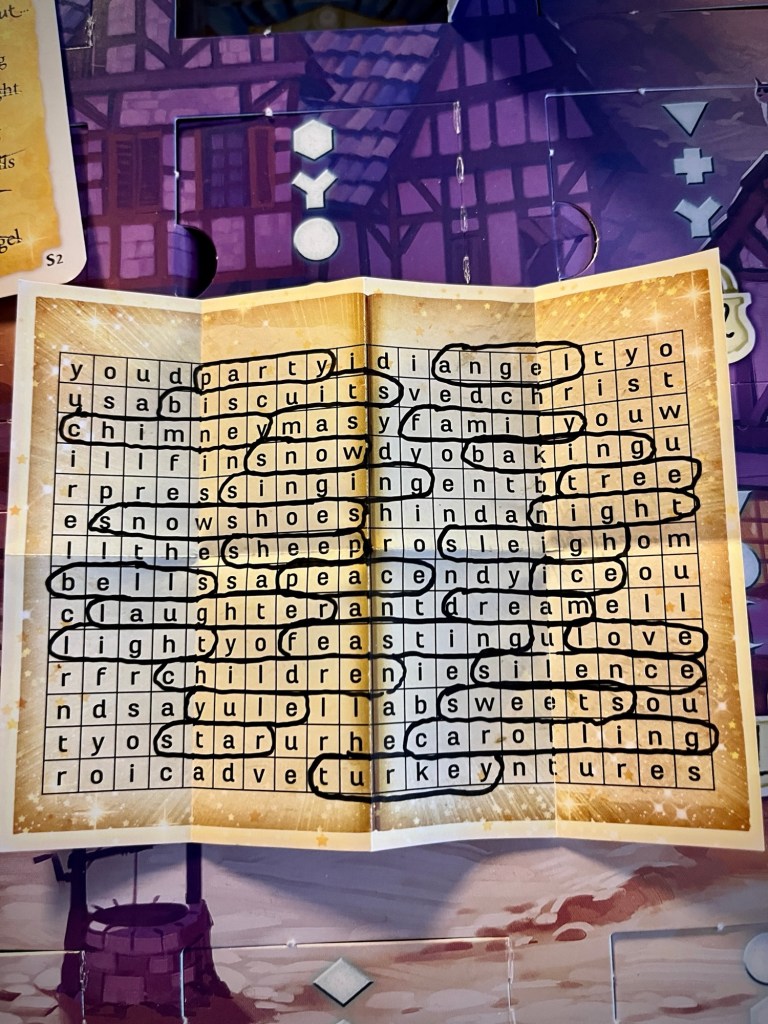 ut...
ght
gel
S2
y o u d p a r t y i d i a n g e l t y o
u s a b i s c u i t s v e d c h r i s t
c h i m n e y m a s y f a m i l y o u w
i l l f i n s n o w d y o b a k i n g u
r p r e s s i n g i n g e n t b t r e e
e s n o w s h o e s h i n d a n i g h t
l l t h e s h e e p r o s l e i g h o m
b e l l s s a p e a c e n d y i c e o u
c l a u g h t e r a n t d r e a m e l l
l i g h t y o f e a s t i n g u l o v e
r f r c h i l d r e n i e s i l e n c e
n d s a y u l e l l a b s w e e t s o u
t y o s t a r u r h e c a r o l l i n g
r o i c a d v e t u r k e y n t u r e s